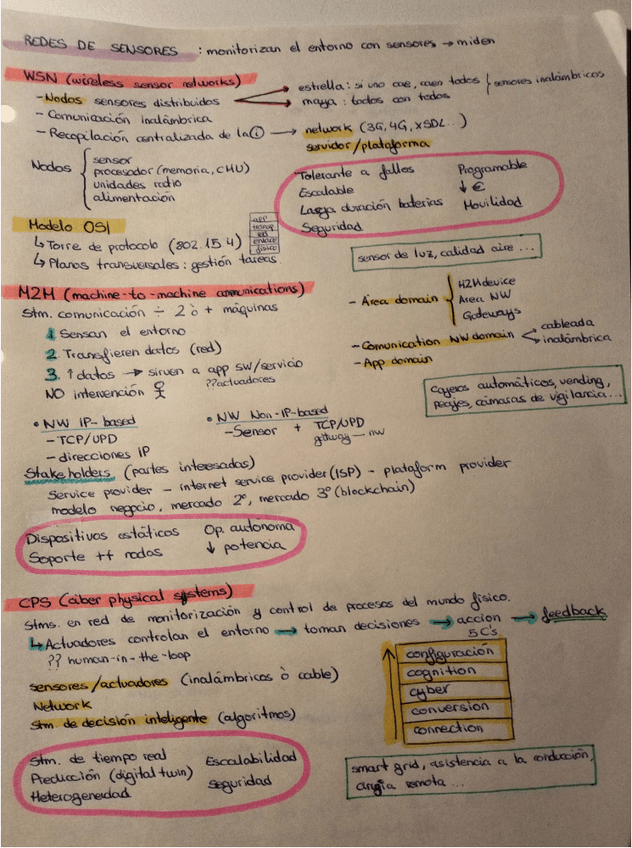 REDES DE SENSORES : monitorizan el entorno con sensores → miden
WSN (wireless sensor networks)
- Nodos sensores distribuidos
→ estrella: si uno cae, caen todos
→ maya: todos con todos
sensores inalámbricos
- Comunicación inalámbrica
- Recopilación centralizada de la → network (3G, 4G, xSDL...)
servidor/plataforma
Nodos
sensor
procesador (memoria, CMU)
unidades radio
alimentación
Tolerante a fallos
Escalable
Larga duración baterías
Seguridad
Programable
↓ €
Movilidad
Modelo OSI
↳ Torre de protocolo (802.15.4)
↳ Planos transversales: gestión tareas
app
transp
red
enlace
físico
sensor de luz, calidad aire ...
M2M (machine-to-machine communications)
Stm. comunicación ÷ 2 ò + máquinas
1. Sensan el entorno
2. Transfieren datos (red)
3. ↑ datos → sirven a app sw/servicio
NO intervención
??actuadores
- Área domain
M2M device
Area NW
Gateways
- Comunication NW domain
cableada
inalámbrica
- App domain
cajeros automáticos, vending,
peajes, cámaras de vigilancia...
• NW IP-based
- TCP/UPD
- direcciones IP
• NW Non-IP-based
- Sensor + TCP/UPD
gitway — nw
Stakeholders (partes interesadas)
Service provider - internet service provider (ISP) - plataform provider
modelo negocio, mercado 2º, mercado 3º (blockchain)
Dispositivos estáticos
Soporte ++ nodos
Op. autónoma
↓ potencia
CPS (ciber physical systems)
Stms. en red de monitorización y control de procesos del mundo físico.
↳ Actuadores controlan el entorno → toman decisiones → accion → feedback
?? human-in-the-loop
5C's
configuración
cognition
cyber
conversion
connection
sensores/actuadores (inalámbricos ò cable)
Network
Stm. de decisión inteligente (algoritmos)
Stm. de tiempo real
Predicción (digital twin)
Heterogeneidad
Escalabilidad
Seguridad
smart grid, asistencia a la conducción,
cirugía remota ...